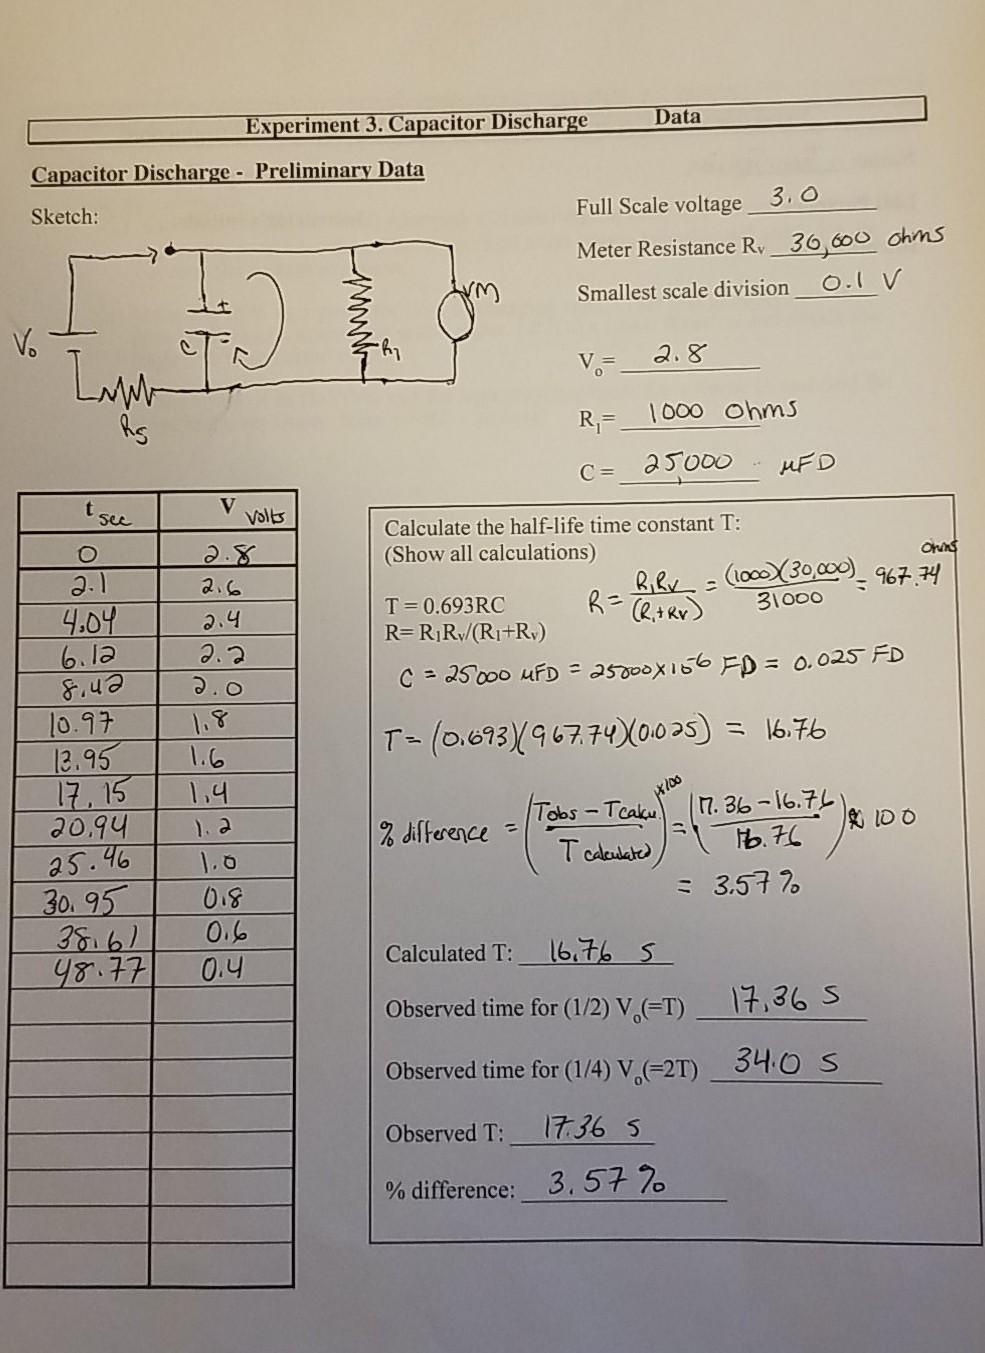 Experiment 3. Capacitor Discharge Data
Capacitor Discharge - Preliminary Data
Sketch:
Full Scale voltage 3.0
Meter Resistance Rv 30,000 ohms
Smallest scale division 0.1 V
Vo= 2.8
R1= 1000 ohms
C= 25,000 μFD
Vo
C
+
-
R1
VM
Rs
t sec V volts
0 2.8
2.1 2.6
4.04 2.4
6.12 2.2
8.42 2.0
10.97 1.8
13.95 1.6
17.15 1.4
20.94 1.2
25.46 1.0
30.95 0.8
38.61 0.6
48.77 0.4
Calculate the half-life time constant T:
(Show all calculations)
T = 0.693RC
R= R1Rv/(R1+Rv)
R = R1Rv/(R1+Rv) = (1000)(30,000)/31000 = 967.74 ohms
C = 25000 μFD = 25000x10^-6 FD = 0.025 FD
T = (0.693)(967.74)(0.025) = 16.76
% difference = (Tobs - Tcalcu./T calculated) x100 = (17.36 - 16.76/16.76) x 100
= 3.57 %
Calculated T: 16.76 s
Observed time for (1/2) Vo(=T) 17.36 s
Observed time for (1/4) Vo(=2T) 34.0 s
Observed T: 17.36 s
% difference: 3.57 %